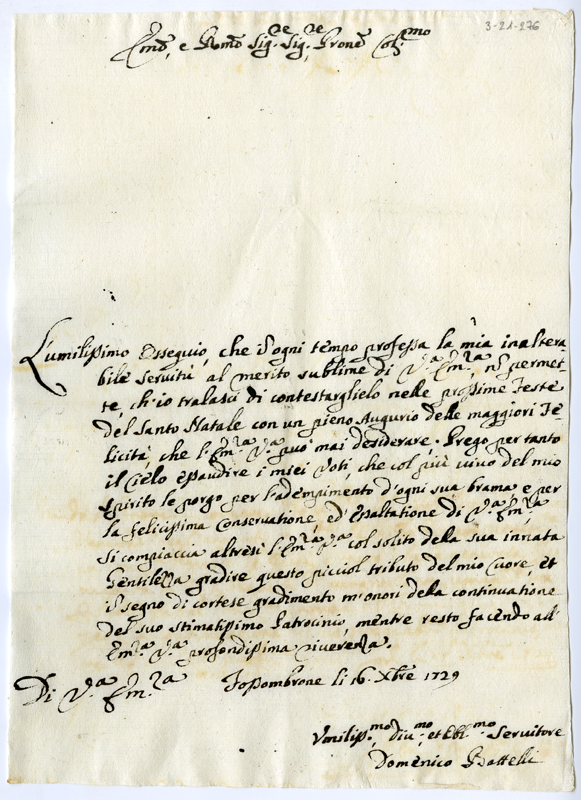 3-21-276
Emõ, e Rmõ Sig.re Sig.re Prone Col.mo
L'umilissimo Ossequio, che i'ogni tempo professa la mia inaltera
bile servitù al merito sublime di V.a Em.za, nõ permet
te, ch'io tralasci di contestarglielo nelle prossime Feste
del Santo Natale con un pieno Augurio delle maggiori Fe
licità, che l'Em.za V.a può mai desiderare. Prego pertanto
il Cielo essaudire i miei Voti, che col più vivo del mio
spirito le porgo per l'adempimento d'ogni sua brama e per
la felicissima Conservatione, ed'Essaltatione di V.a Em.za
Si compiaccia altresì l'Em.za V.a col solito della sua innata
Gentilezza gradire questo picciol tributo del mio Cuore, et
i' segno di cortese gradimento m'onori della continuatione
del suo stimatissimo Patrocinio, mentre resto facendo all'
Em.za V.a profondissima riverenza.
Di V.a Em.za Fossombrone li 16. Xbre 1729
Vmiliss.mo Diu.mo et Obl.mo Servitore
Domenico Battelli